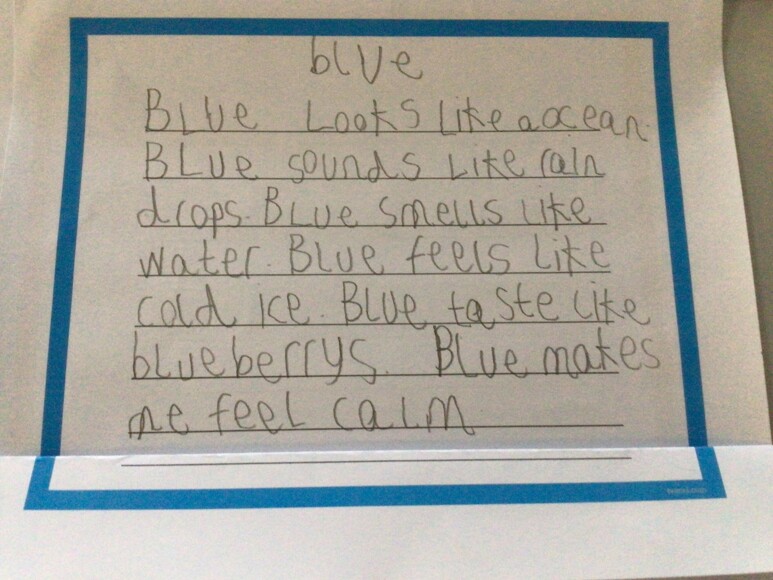 blue
Blue Looks Like a ocean.
BLue sounds Like rain
drops. BLue smells like
water. Blue feels Like
cold ice. Blue taste like
blueberrys. Blue makes
me feel calm